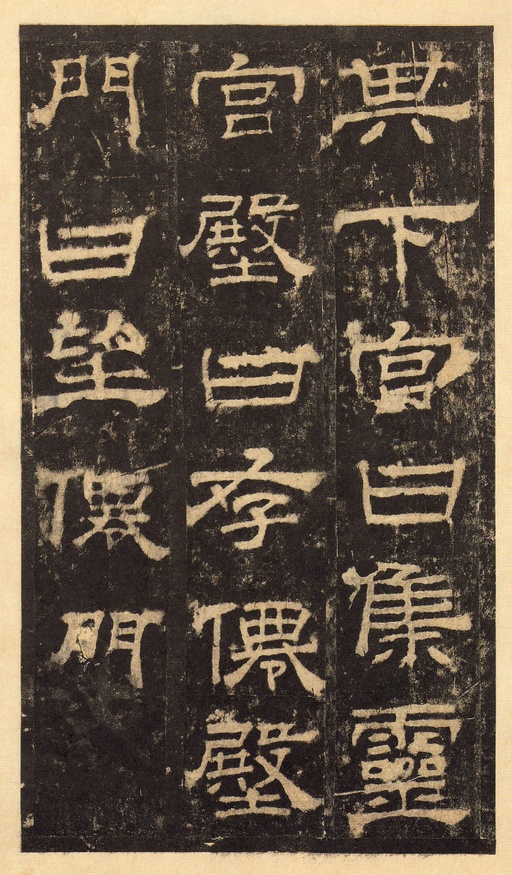 其下宮曰集靈
宮殿曰存僊殿
門曰望僊門